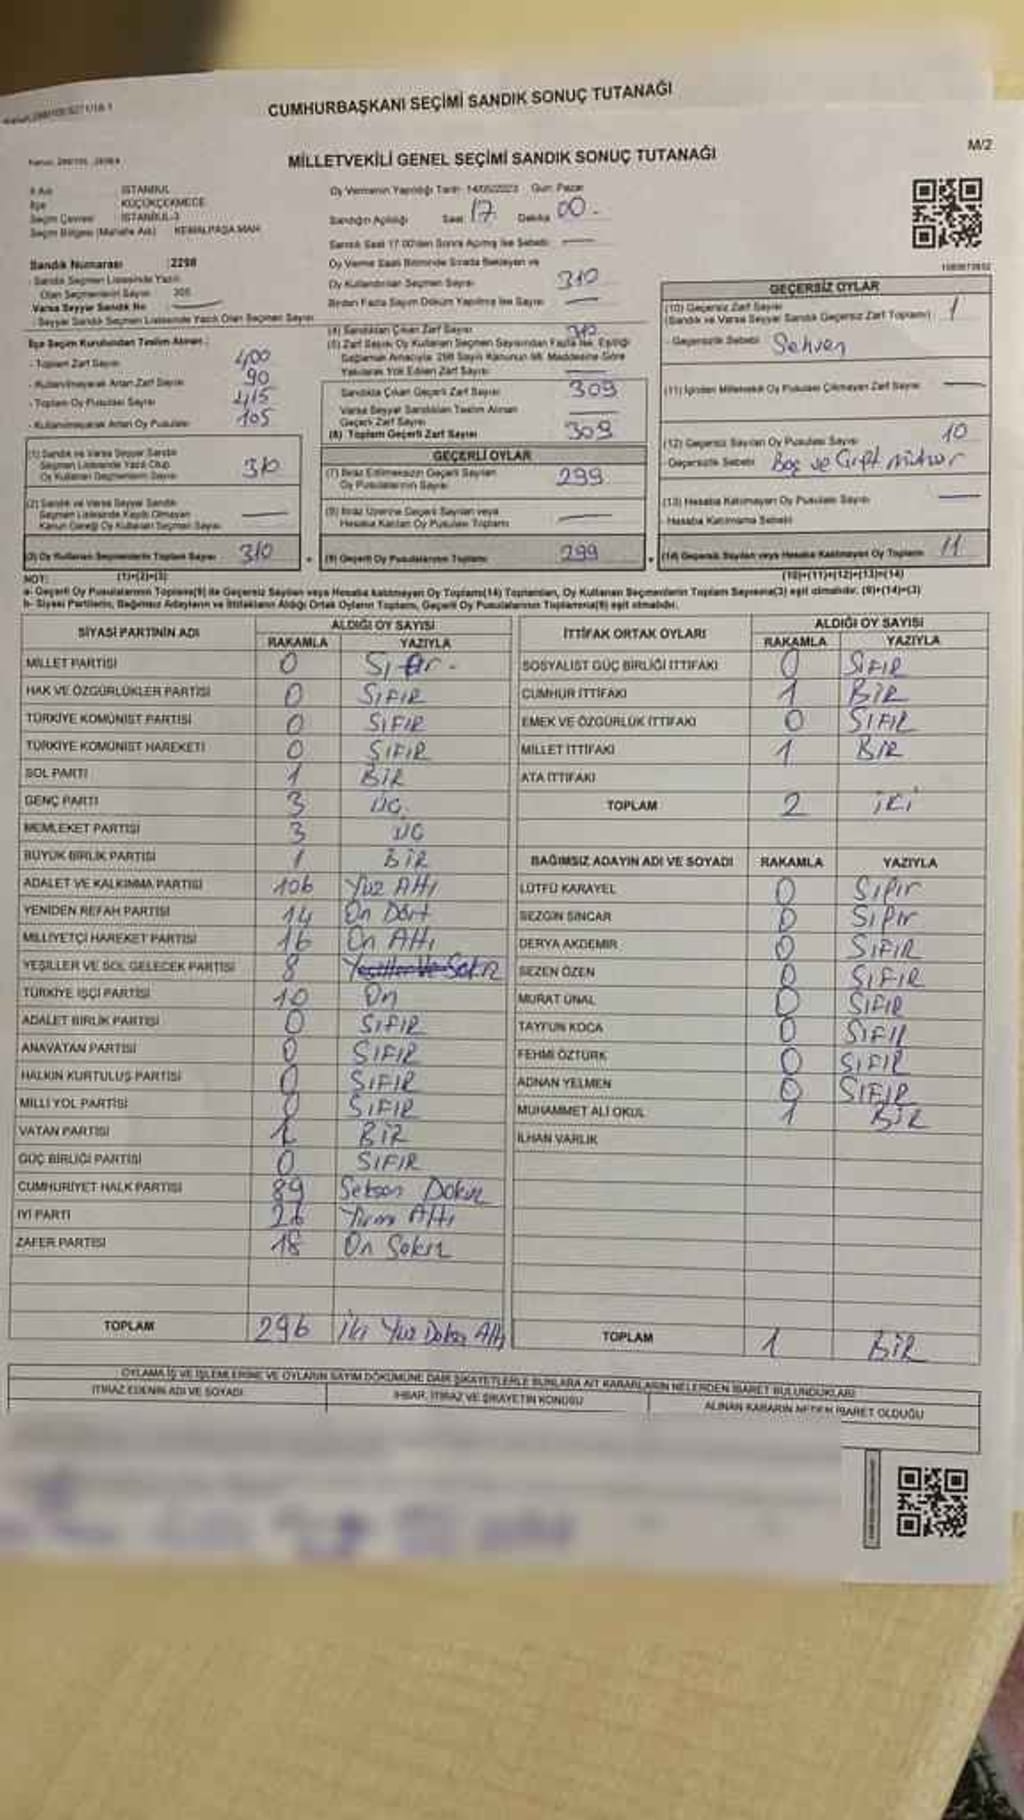 CUMHURBAŞKANI SEÇİMİ SANDIK SONUÇ TUTANAĞI
MİLLETVEKİLİ GENEL SEÇİMİ SANDIK SONUÇ TUTANAĞI
M/2
İl Adı İSTANBUL
İlçe KÜÇÜKÇEKMECE
Seçim Çevresi İSTANBUL-3
Seçim Bölgesi (Mahalle Adı) KEMALPAŞA MAH.
Sandık Numarası 2298
Sandık Seçmen Listesinde Yazılı
Olan Seçmenlerin Sayısı
Varsa Seyyar Sandık No
Seyyar Sandık Seçmen Listesinde Yazılı Olan Seçmen Sayısı
İlçe Seçim Kurulundan Teslim Alınan :
- Toplam Zarf Sayısı 400
- Kullanılmayarak Artan Zarf Sayısı 90
- Toplam Oy Pusulası Sayısı 415
- Kullanılmayarak Artan Oy Pusulası 105
(1) Sandık ve Varsa Seyyar Sandık
Seçmen Listesinde Yazılı Olup
Oy Kullanan Seçmenlerin Sayısı 310
(2) Sandık ve Varsa Seyyar Sandık
Seçmen Listesinde Kaydı Olmayan
Kanun Gereği Oy Kullanan Seçmen Sayısı
(3) Oy Kullanan Seçmenlerin Toplam Sayısı 310
(1)+(2)=(3)
Oy Vermenin Yapıldığı Tarih 14/05/2023 Gün Pazar
Sandığın Açıldığı Saat 17 Dakika 00.
Sandık Saat 17.00'den Sonra Açılmış İse Sebebi
Oy Verme Saati Bitiminde Sırada Bekleyen ve
Oy Kullandırılan Seçmen Sayısı 310
Birden Fazla Sayım Döküm Yapılmış İse Sayısı
(4) Sandıktan Çıkan Zarf Sayısı 310
(5) Zarf Sayısı Oy Kullanan Seçmen Sayısından Fazla İse, Eşitliği
Sağlamak Amacıyla 298 Sayılı Kanunun 98. Maddesine Göre
Yakılarak Yok Edilen Zarf Sayısı
Sandıkta Çıkan Geçerli Zarf Sayısı 309
Varsa Seyyar Sandıktan Teslim Alınan
Geçerli Zarf Sayısı
(6) Toplam Geçerli Zarf Sayısı 309
GEÇERLİ OYLAR
(7) İtiraz Edilmeksizin Geçerli Sayılan
Oy Pusulalarının Sayısı 299
(8) İtiraz Üzerine Geçerli Sayılan veya
Hesaba Katılan Oy Pusulası Toplamı
(9) Geçerli Oy Pusulalarının Toplamı 299
GEÇERSİZ OYLAR
(10) Geçersiz Zarf Sayısı
(Sandık ve Varsa Seyyar Sandık Geçersiz Zarf Toplamı) 1
- Geçersizlik Sebebi Sehven
(11) İçinden Milletvekili Oy Pusulası Çıkmayan Zarf Sayısı
(12) Geçersiz Sayılan Oy Pusulası Sayısı 10
- Geçersizlik Sebebi Boş ve Çift mühür
(13) Hesaba Katılmayan Oy Pusulası Sayısı
- Hesaba Katılmama Sebebi
(14) Geçersiz Sayılan veya Hesaba Katılmayan Oy Toplamı 11
(10)+(11)+(12)+(13)=(14)
NOT:
a- Geçerli Oy Pusulalarının Toplamı(9) ile Geçersiz Sayılan veya Hesaba katılmayan Oy Toplamı(14) Toplamları, Oy Kullanan Seçmenlerin Toplam Sayısına(3) eşit olmalıdır. (9)+(14)=(3)
b- Siyasi Partilerin, Bağımsız Adayların ve İttifakların Aldığı Ortak Oyların Toplamı, Geçerli Oy Pusulalarının Toplamına(9) eşit olmalıdır.
SİYASİ PARTİNİN ADI ALDIĞI OY SAYISI
RAKAMLA YAZIYLA
MİLLET PARTİSİ 0
HAK VE ÖZGÜRLÜKLER PARTİSİ 0 SIFIR
TÜRKİYE KOMÜNİST PARTİSİ 0 SIFIR
TÜRKİYE KOMÜNİST HAREKETİ 0 SIFIR
SOL PARTİ 1 BİR
GENÇ PARTİ 3 ÜÇ.
MEMLEKET PARTİSİ 3 ÜÇ
BÜYÜK BİRLİK PARTİSİ 1 BİR
ADALET VE KALKINMA PARTİSİ 106 Yüz Altı
YENİDEN REFAH PARTİSİ 14 On Dört
MİLLİYETÇİ HAREKET PARTİSİ 16 On Altı
YEŞİLLER VE SOL GELECEK PARTİSİ 8 Sekiz
TÜRKİYE İŞÇİ PARTİSİ 10 On
ADALET BİRLİK PARTİSİ 0 SIFIR
ANAVATAN PARTİSİ 0 SIFIR
HALKIN KURTULUŞ PARTİSİ 0 SIFIR
MİLLİ YOL PARTİSİ 0 SIFIR
VATAN PARTİSİ 1 BİR
GÜÇ BİRLİĞİ PARTİSİ 0 SIFIR
CUMHURİYET HALK PARTİSİ 89 Seksen Dokuz
İYİ PARTİ 26 Yirmi Altı
ZAFER PARTİSİ 18 On Sekiz
TOPLAM 296 İki Yüz Doksan Altı
İTTİFAK ORTAK OYLARI ALDIĞI OY SAYISI
RAKAMLA YAZIYLA
SOSYALİST GÜÇ BİRLİĞİ İTTİFAKI 0 SIFIR
CUMHUR İTTİFAKI 1 BİR
EMEK VE ÖZGÜRLÜK İTTİFAKI 0 SIFIR
MİLLET İTTİFAKI 1 BİR
ATA İTTİFAKI
TOPLAM 2 İKİ
BAĞIMSIZ ADAYIN ADI VE SOYADI RAKAMLA YAZIYLA
LÜTFÜ KARAYEL 0 Sıfır
SEZGİN SİNCAR 0 Sıfır
DERYA AKDEMİR 0 SIFIR
SEZEN ÖZEN 0 SIFIR
MURAT ÜNAL 0 SIFIR
TAYFUN KOCA 0 SIFIR
FEHMİ ÖZTÜRK 0 SIFIR
ADNAN YELMEN 0 SIFIR
MUHAMMET ALİ OKUL 1 BİR
İLHAN VARLIK
TOPLAM 1 BİR
OYLAMA İŞ VE İŞLEMLERİNE VE OYLARIN SAYIM DÖKÜMÜNE DAİR ŞİKAYETLERLE BUNLARA AİT KARARLARIN NELERDEN İBARET BULUNDUKLARI
İTİRAZ EDENİN ADI VE SOYADI İHBAR, İTİRAZ VE ŞİKAYETİN KONUSU ALINAN KARARIN NEDEN İBARET OLDUĞU